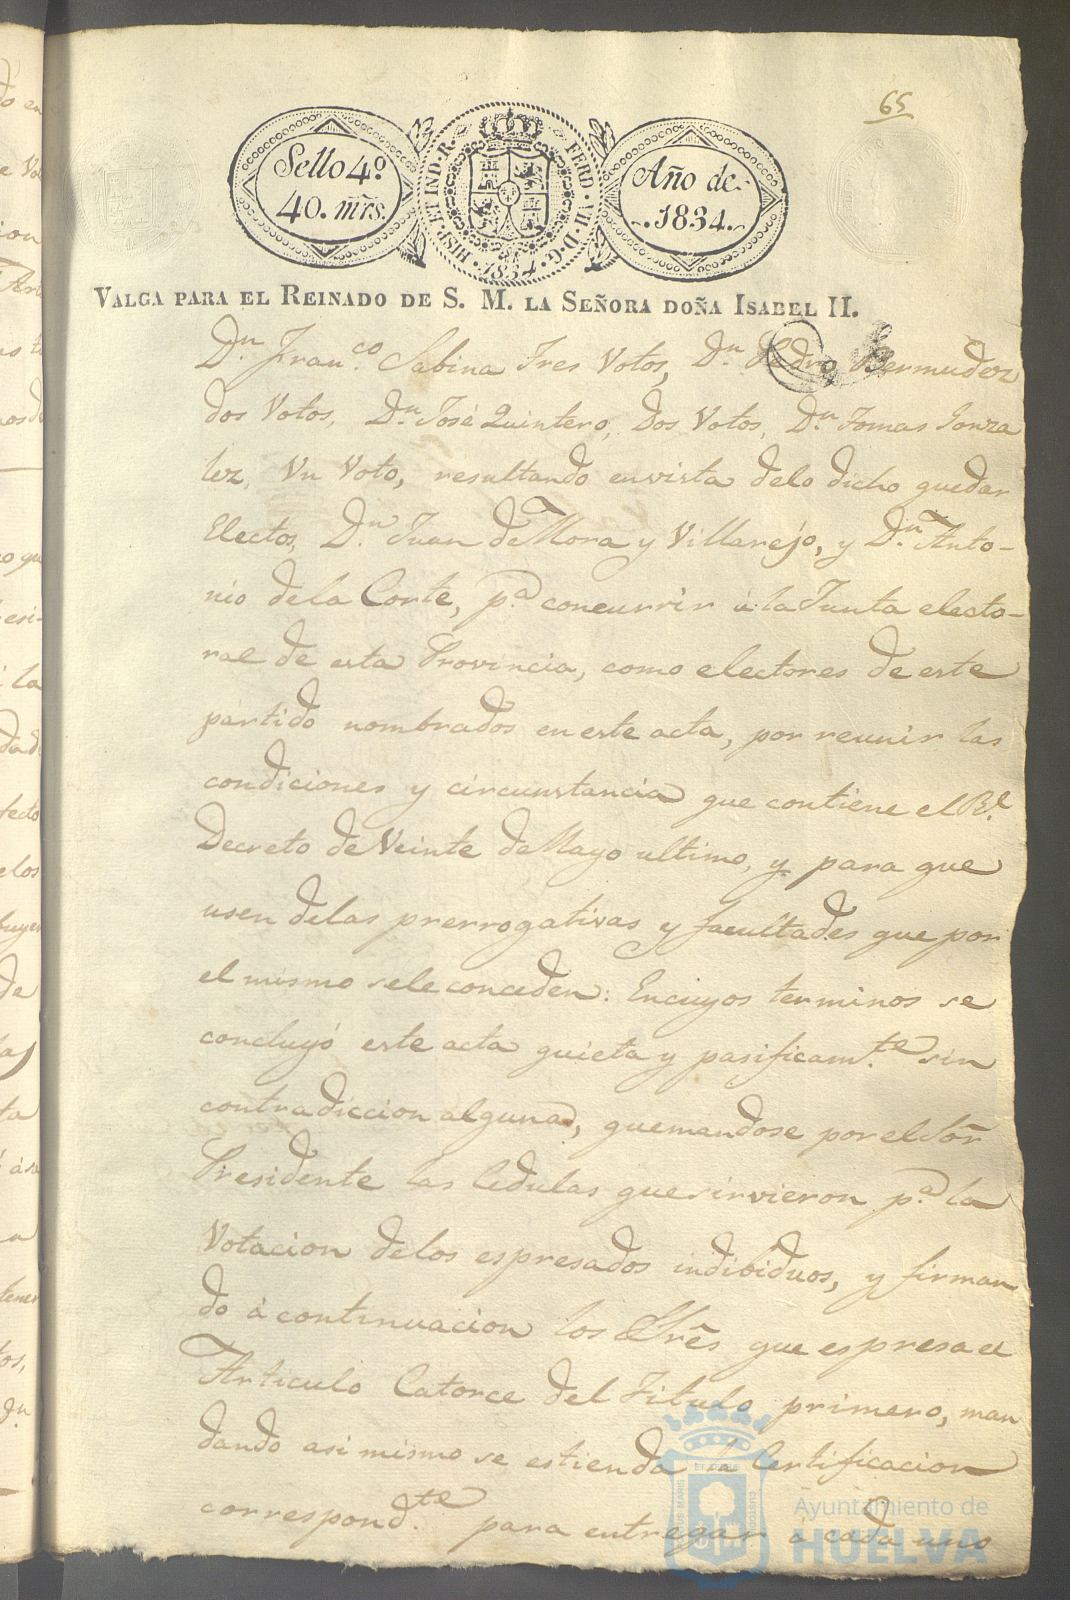 65
Sello 4º
40. mrs.
HISP. ET IND. R. FERD. VII. D. G. 1834.
Año de
1834.
VALGA PARA EL REINADO DE S. M. LA SEÑORA DOÑA ISABEL II.
Dn. Franco. Sabina Tres Votos, Dn. Pedro Bermudez
dos Votos, Dn. José Quintero, Dos Votos, Dn. Tomas Gonza
lez, Un Voto, resultando envista delo dicho quedar
Electos, Dn. Juan de Mora y Villarejo, y Dn. Anto-
nio dela Corte, pa. concurrir à la Junta electo-
ral de esta Provincia, como electores de este
partido nombrados en este acta, por reunir las
condiciones y circunstancia que contiene el Rl.
Decreto de Veinte de Mayo ultimo, y para que
usen delas prerrogativas y facultades que por
el mismo sele conceden: Encuyos terminos se
concluyó este acta quieta y pasificamte. sin
contradiccion alguna, quemandose por el Sõr
Presidente las Cedulas que sirvieron pa. la
Votacion delos espresados indibiduos, y firman
do à continuacion los Srẽs que espresa el
Articulo Catorce del Titulo primero, man
dando asi mismo se estienda la Certificacion
correspondte. para entregar à cada uno
Ayuntamiento de
HUELVA